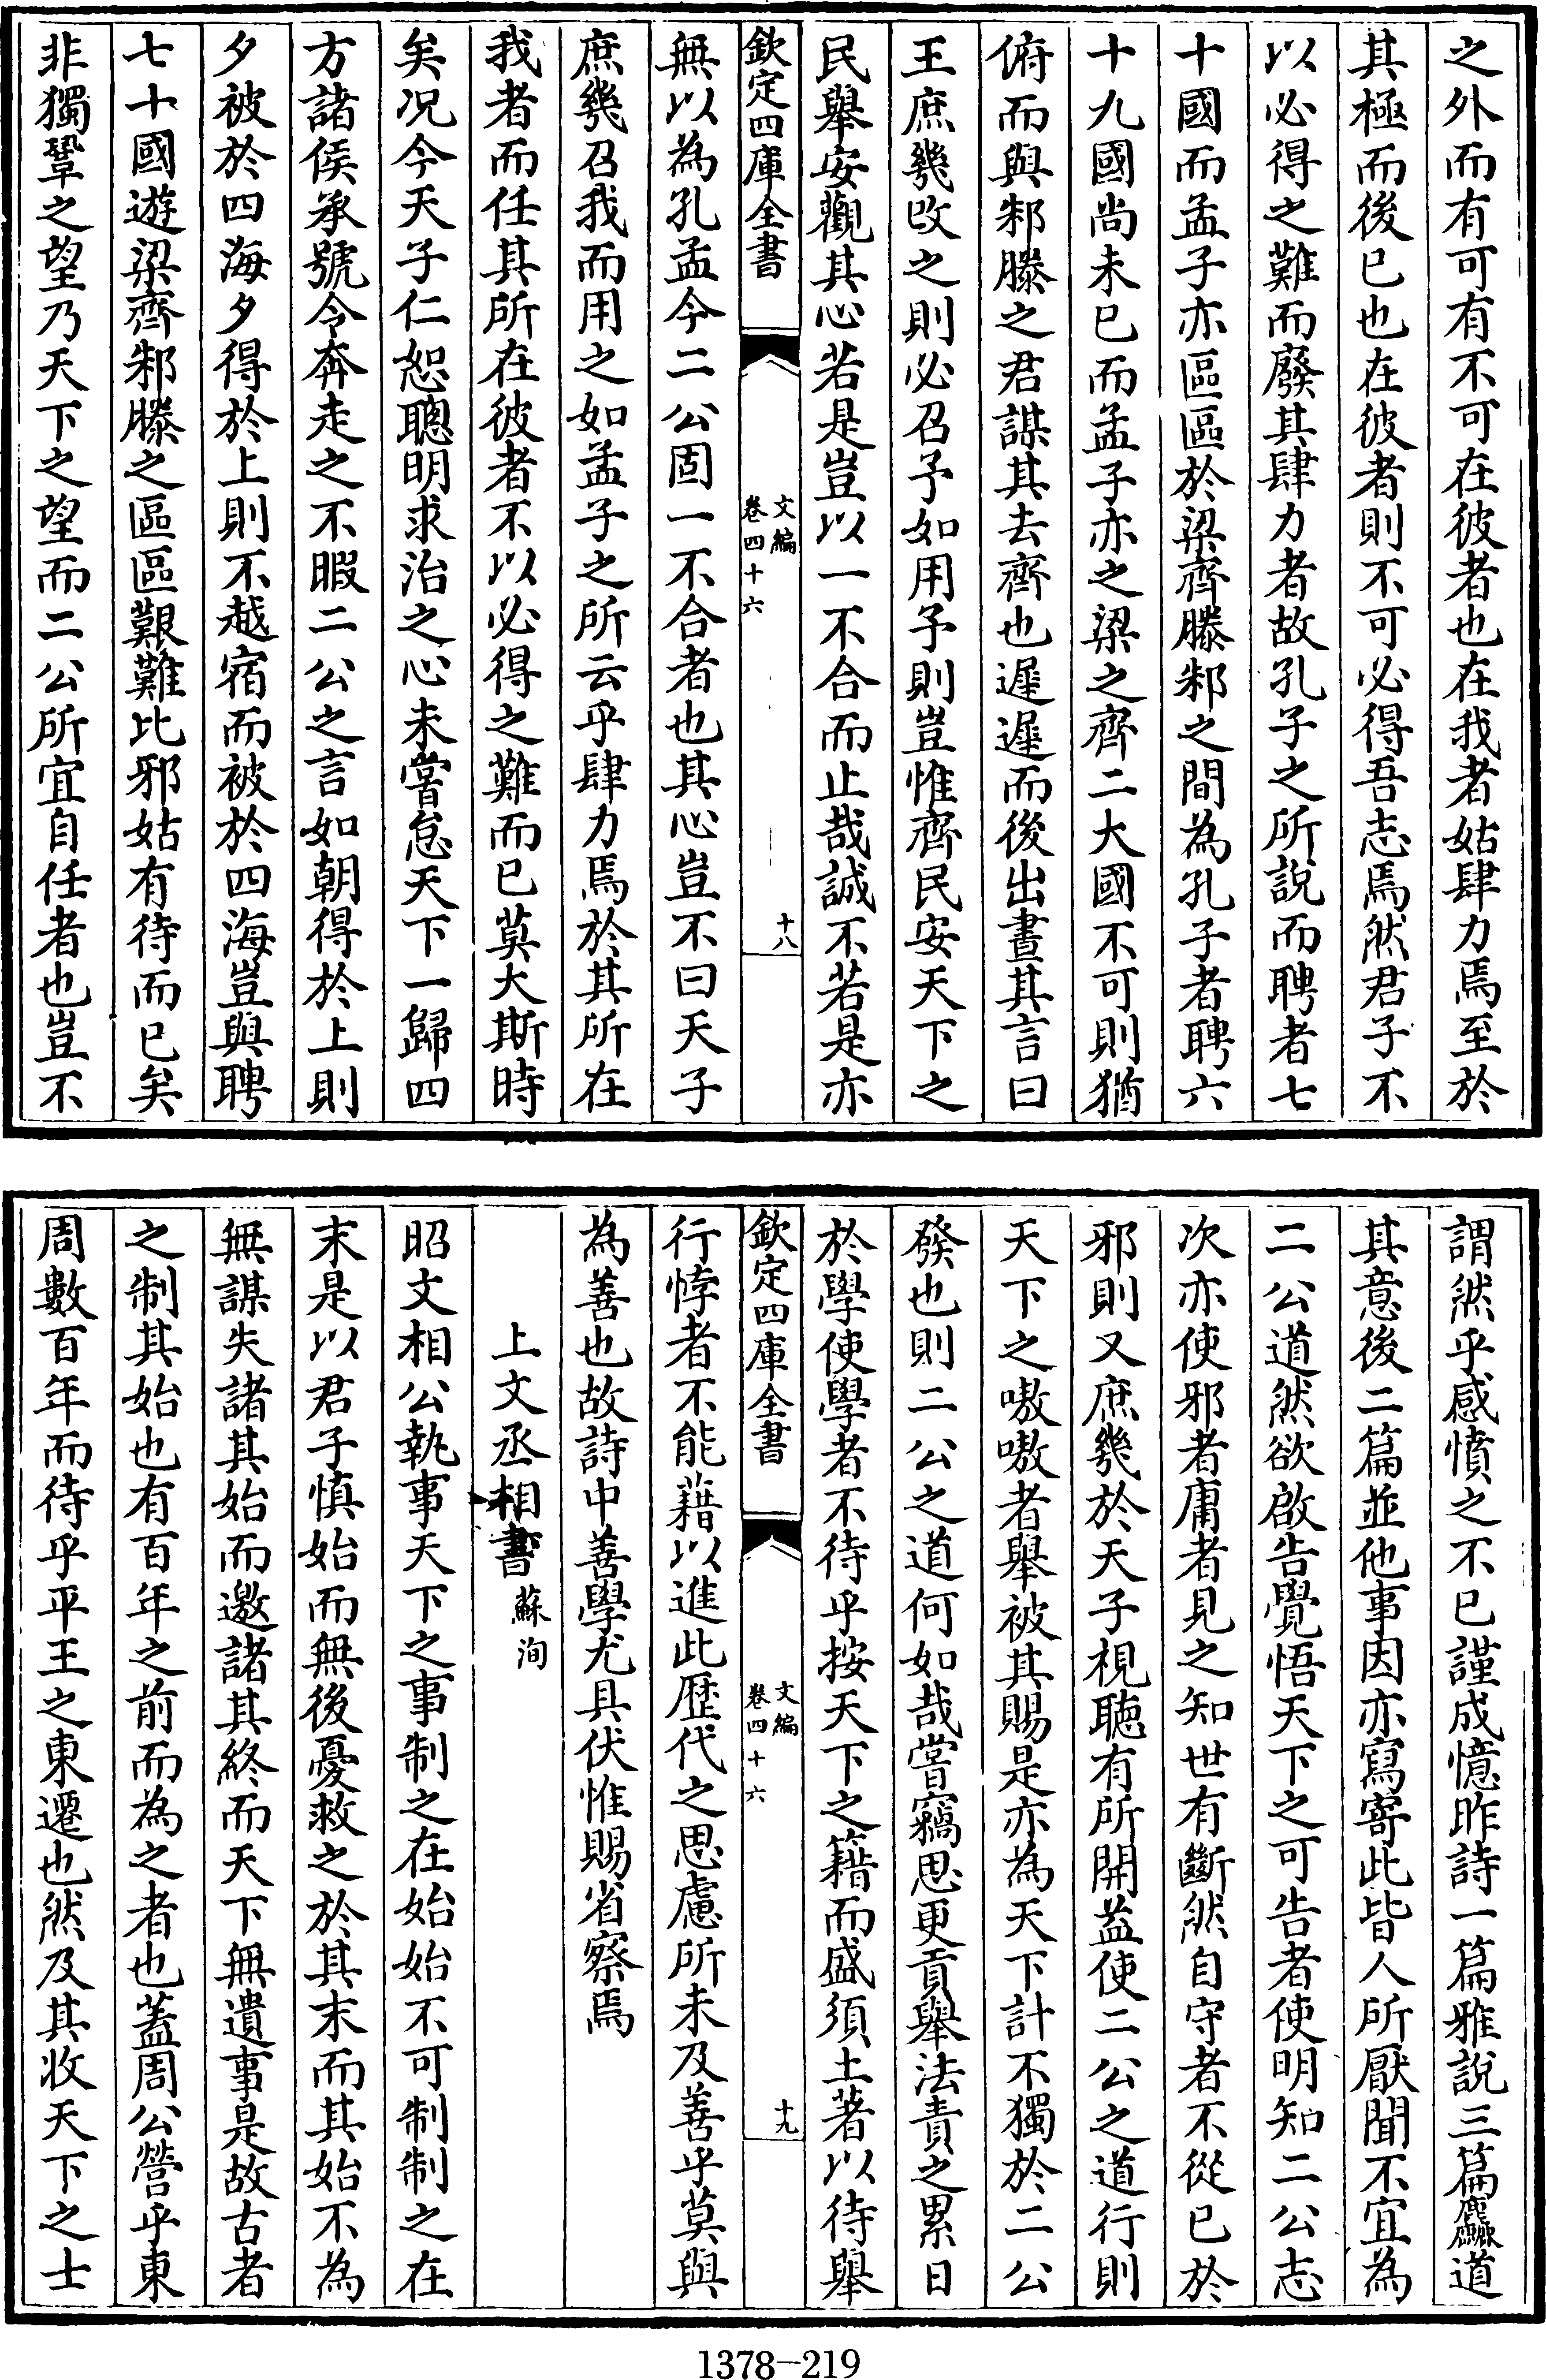 之外而有可有不可在彼者也在我者姑肆力焉至於
其極而後已也在彼者則不可必得吾志焉然君子不
以必得之難而廢其肆力者故孔子之所說而聘者七
十國而孟子亦區區於梁齊滕邾之間為孔子者聘六
十九國尚未已而孟子亦之梁之齊二大國不可則猶
俯而與邾滕之君謀其去齊也遲遲而後出晝其言曰
王庶幾改之則必召予如用予則豈惟齊民安天下之
民舉安觀其心若是豈以一不合而止哉誠不若是亦
欽定四庫全書
文編
卷四十六
十八
無以為孔孟今二公固一不合者也其心豈不曰天子
庶幾召我而用之如孟子之所云乎肆力焉於其所在
我者而任其所在彼者不以必得之難而已莫大斯時
矣况今天子仁恕聰明求治之心未嘗怠天下一歸四
方諸侯承號令奔走之不暇二公之言如朝得於上則
夕被於四海夕得於上則不越宿而被於四海豈與聘
七十國遊梁齊邾滕之區區艱難比邪姑有待而已矣
非獨鞏之望乃天下之望而二公所宜自任者也豈不
謂然乎感憤之不已謹成憶昨詩一篇雅說三篇麤道
其意後二篇並他事因亦寫寄此皆人所厭聞不宜為
二公道然欲啟告覺悟天下之可告者使明知二公志
次亦使邪者庸者見之知世有斷然自守者不從已於
邪則又庶幾於天子視聽有所開益使二公之道行則
天下之嗷嗷者舉被其賜是亦為天下計不獨於二公
發也則二公之道何如哉嘗竊思更貢舉法責之累日
於學使學者不待乎按天下之籍而盛須土著以待舉
欽定四庫全書
文編
卷四十六
十九
行悖者不能藉以進此歷代之思慮所未及善乎莫與
為善也故詩中善學尤具伏惟賜省察焉
上文丞相書 蘇洵
昭文相公執事天下之事制之在始始不可制制之在
末是以君子慎始而無後憂救之於其末而其始不為
無謀失諸其始而邀諸其終而天下無遺事是故古者
之制其始也有百年之前而為之者也蓋周公營乎東
周數百年而待乎平王之東遷也然及其收天下之士
1378-219